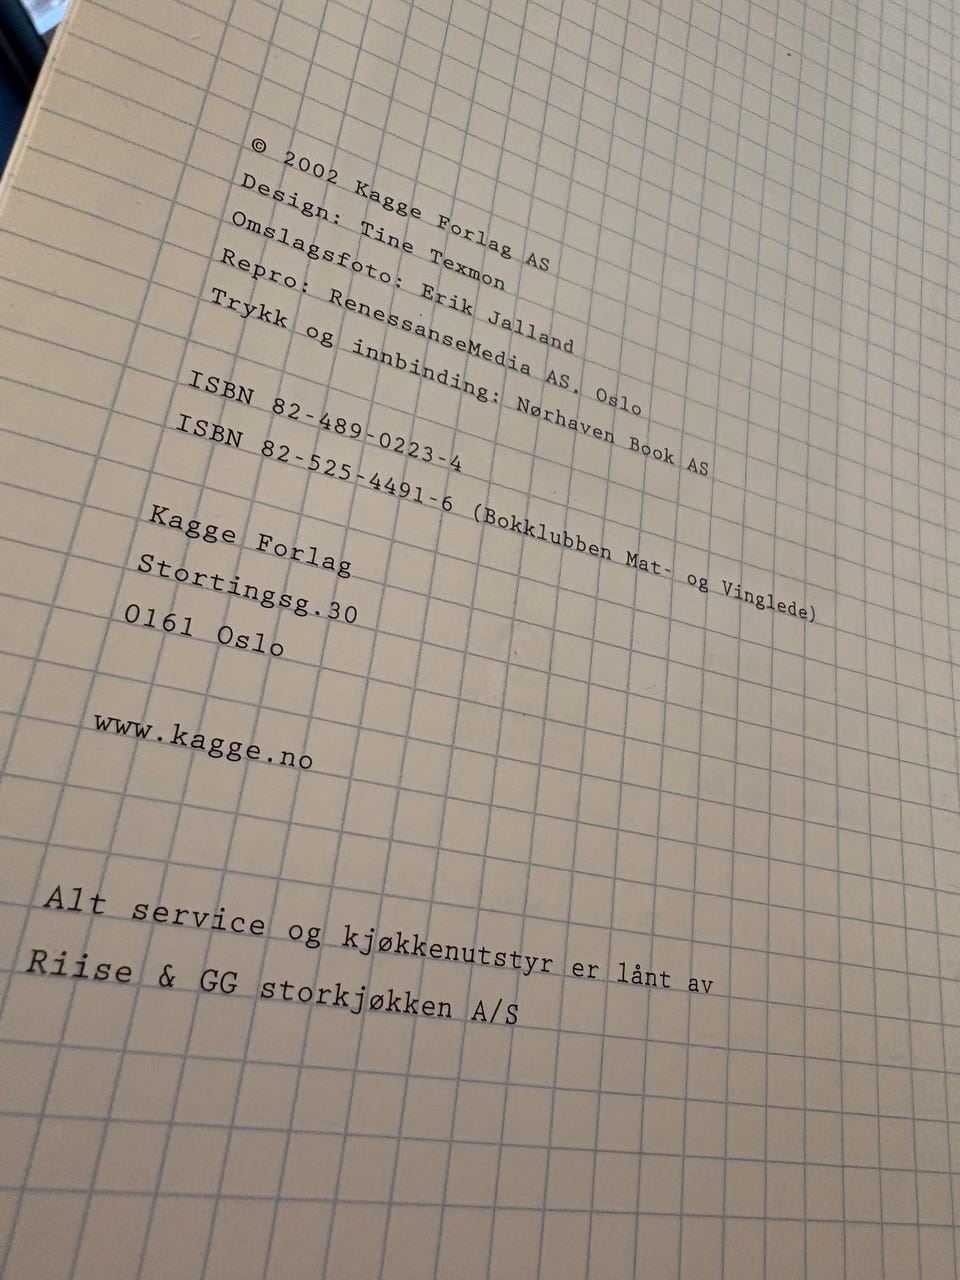 © 2002 Kagge Forlag AS
Design: Tine Texmon
Omslagsfoto: Erik Jalland
Repro: RenessanseMedia AS, Oslo
Trykk og innbinding: Nørhaven Book AS
ISBN 82-489-0223-4
ISBN 82-525-4491-6 (Bokklubben Mat- og Vinglede)
Kagge Forlag
Stortingsg.30
0161 Oslo
www.kagge.no
Alt service og kjøkkenutstyr er lånt av
Riise & GG storkjøkken A/S